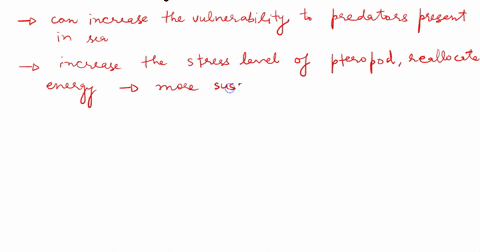 → can increase the vulnerability to predators present
in sea
→ increase the stress level of pteropod, reallocate
energy → more sus